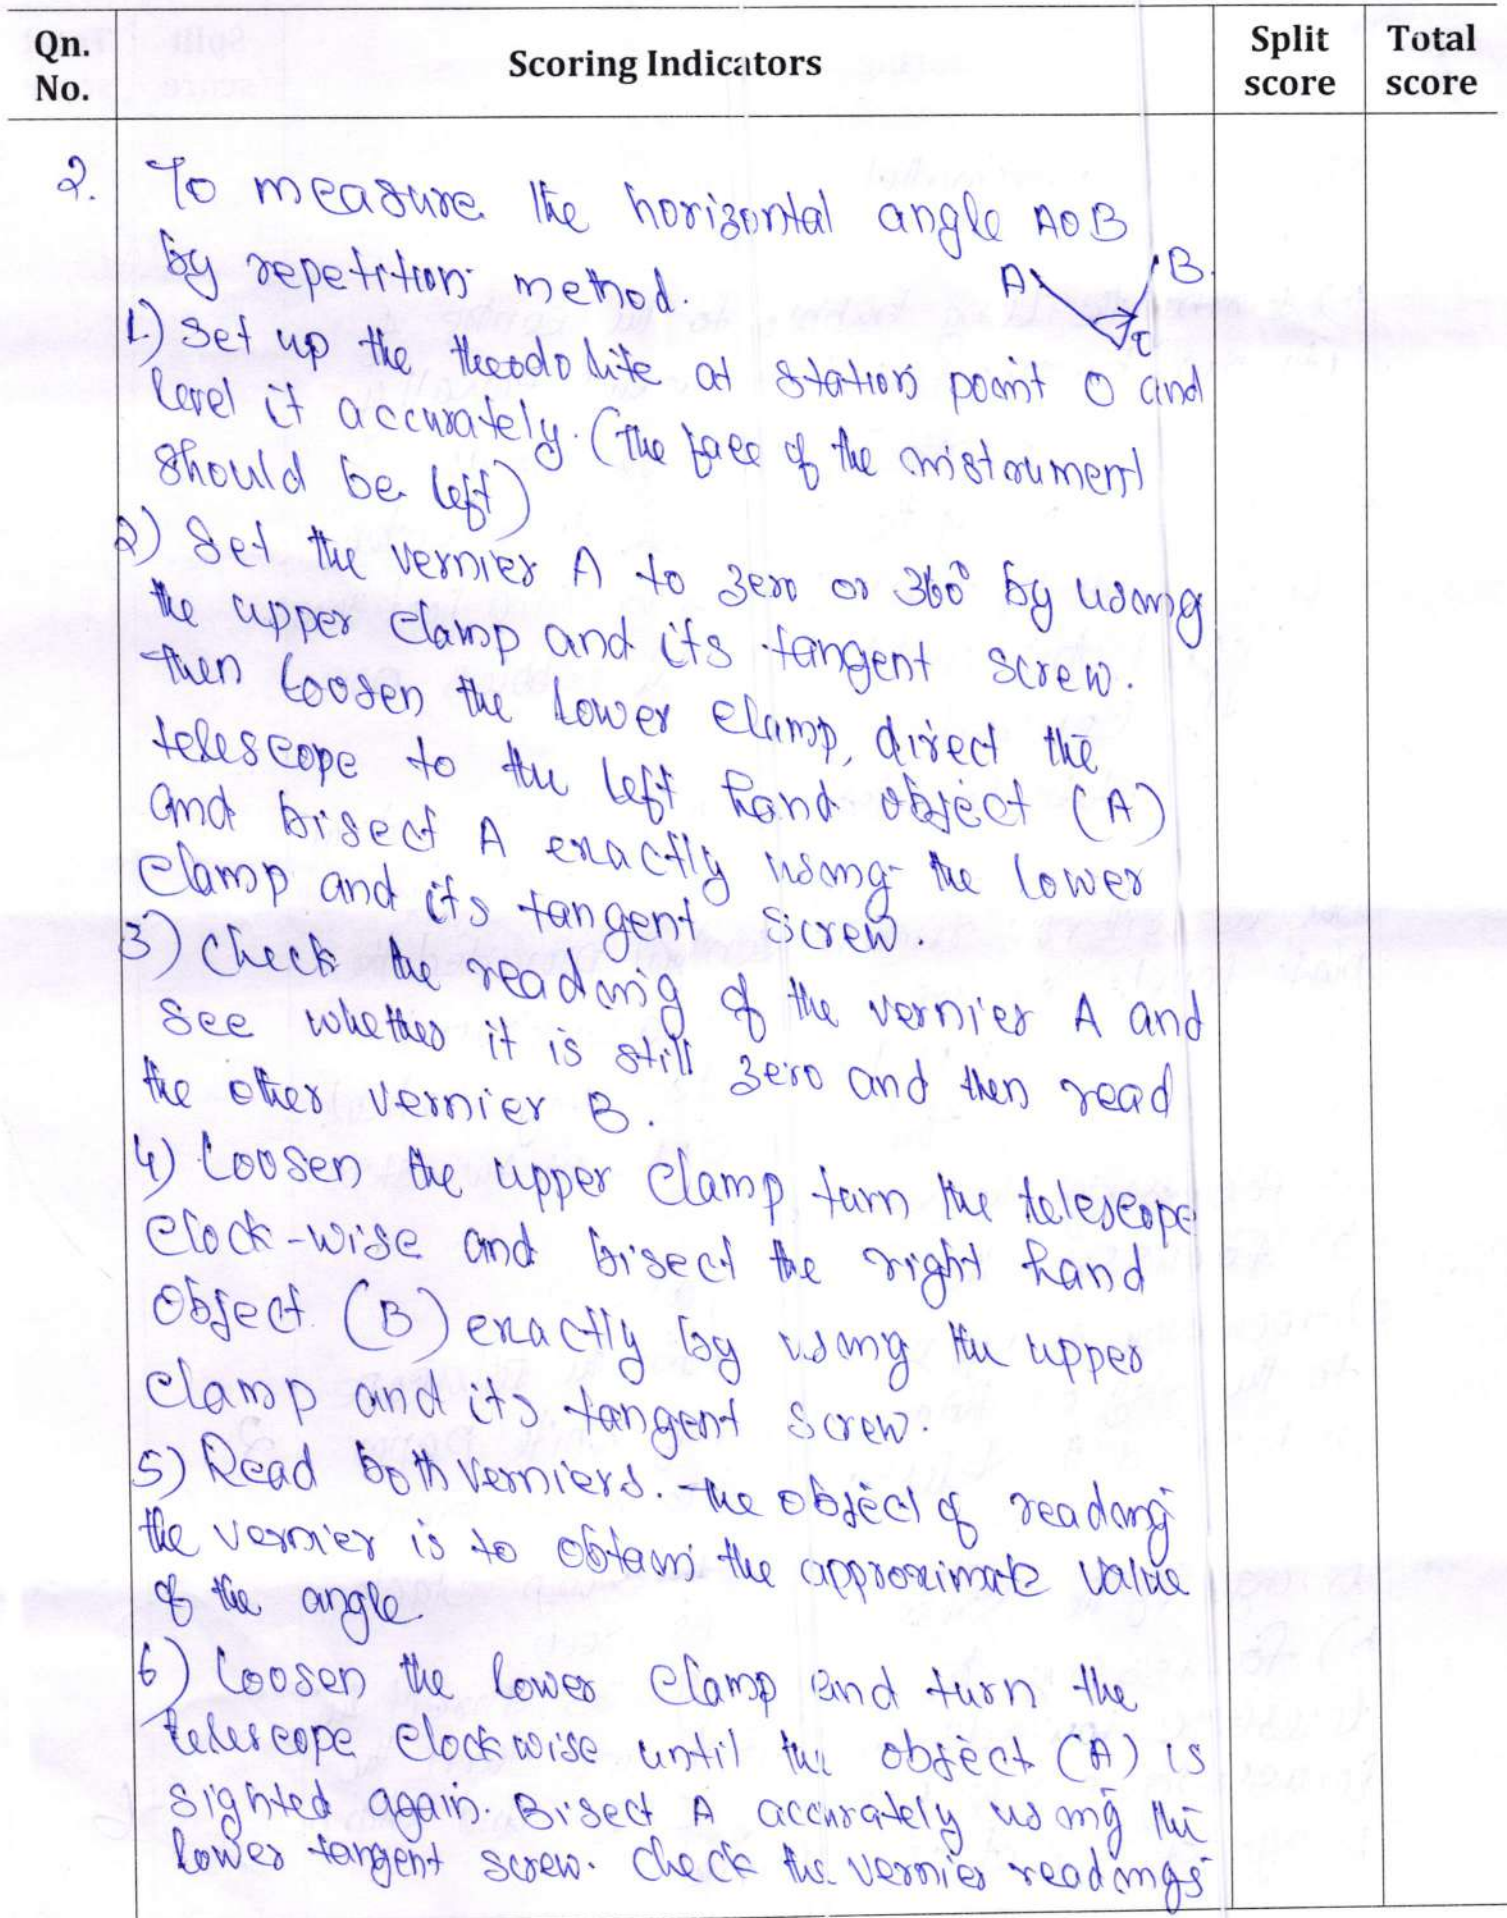 Qn. No.
Scoring Indicators
Split score
Total score
2. To measure the horizontal angle AOB
by repetition method.
A B
1) Set up the theodolite at station point O and
level it accurately. (The face of the instrument
should be left)
2) Set the vernier A to zero or 360° by using
the upper clamp and its tangent screw.
then loosen the lower clamp, direct the
telescope to the left hand object (A)
and bisect A exactly using the lower
clamp and its tangent screw.
3) Check the reading of the vernier A and
see whether it is still zero and then read
the other vernier B.
4) Loosen the upper clamp turn the telescope
clock-wise and bisect the right hand
object (B) exactly by using the upper
clamp and its tangent screw.
5) Read both verniers. The object of reading
the vernier is to obtain the approximate value
of the angle.
6) Loosen the lower clamp and turn the
telescope clockwise until the object (A) is
sighted again. Bisect A accurately using the
lower tangent screw. Check the vernier readings